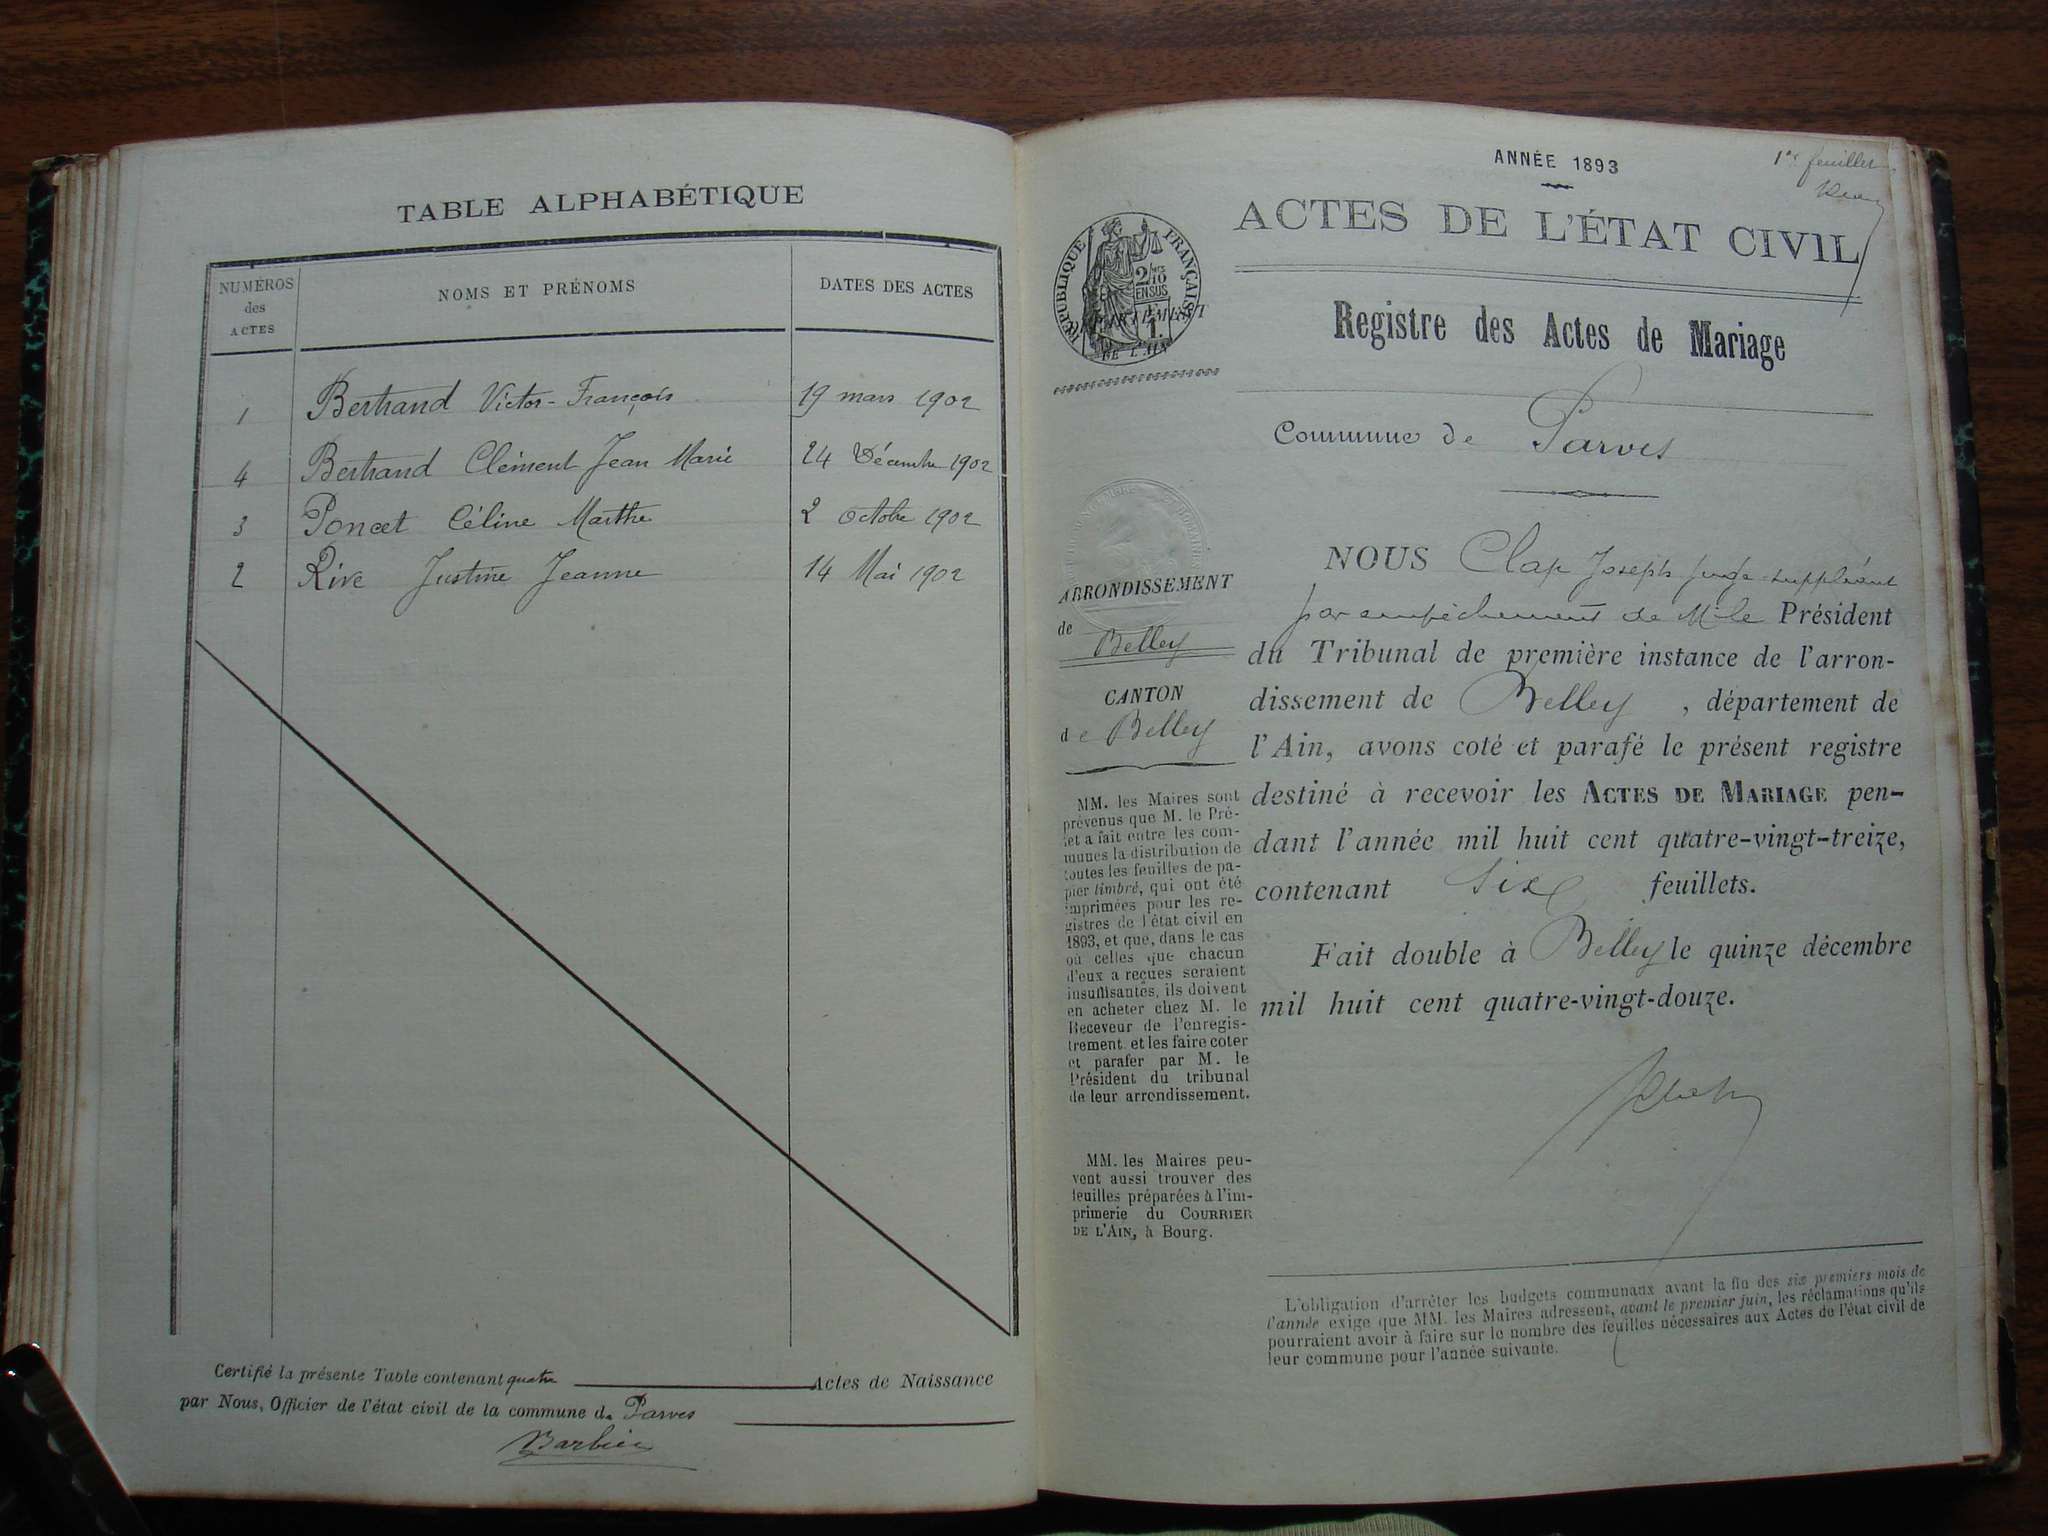 TABLE ALPHABÉTIQUE
NUMÉROS des ACTES
NOMS ET PRÉNOMS
DATES DES ACTES
1 Bertrand Victor-François 19 mars 1902
4 Bertrand Clément Jean Marie 24 Décembre 1902
3 Poncet Céline Marthe 2 Octobre 1902
2 Rive Justine Jeanne 14 Mai 1902
Certifié la présente Table contenant quatre Actes de Naissance
par Nous, Officier de l'état civil de la commune de Parves
Barbier
ANNÉE 1893
1er feuillet
ACTES DE L'ÉTAT CIVIL
RÉPUBLIQUE FRANÇAISE
2/10
EN SUS
DÉPARTEMENT
DE L'AIN
Registre des Actes de Mariage
Commune de Parves
ARRONDISSEMENT
de Belley
CANTON
de Belley
MM. les Maires sont
prévenus que M. le Pré-
fet a fait entre les com-
munes la distribution de
toutes les feuilles de pa-
pier timbré, qui ont été
imprimées pour les re-
gistres de l'état civil en
1893, et que, dans le cas
où celles que chacun
d'eux a reçues seraient
insuffisantes, ils doivent
en acheter chez M. le
Receveur de l'enregis-
trement et les faire coter
et parafer par M. le
Président du tribunal
de leur arrondissement.
MM. les Maires peu-
vent aussi trouver des
feuilles préparées à l'im-
primerie du COURRIER
DE L'AIN, à Bourg.
NOUS Clap Joseph juge suppléant
par empêchement de M. le Président
du Tribunal de première instance de l'arron-
dissement de Belley, département de
l'Ain, avons coté et parafé le présent registre
destiné à recevoir les ACTES DE MARIAGE pen-
dant l'année mil huit cent quatre-vingt-treize,
contenant six feuillets.
Fait double à Belley le quinze décembre
mil huit cent quatre-vingt-douze.
L'obligation d'arrêter les budgets communaux avant la fin des six premiers mois de
l'année exige que MM. les Maires adressent, avant le premier juin, les réclamations qu'ils
pourraient avoir à faire sur le nombre des feuilles nécessaires aux Actes de l'état civil de
leur commune pour l'année suivante.